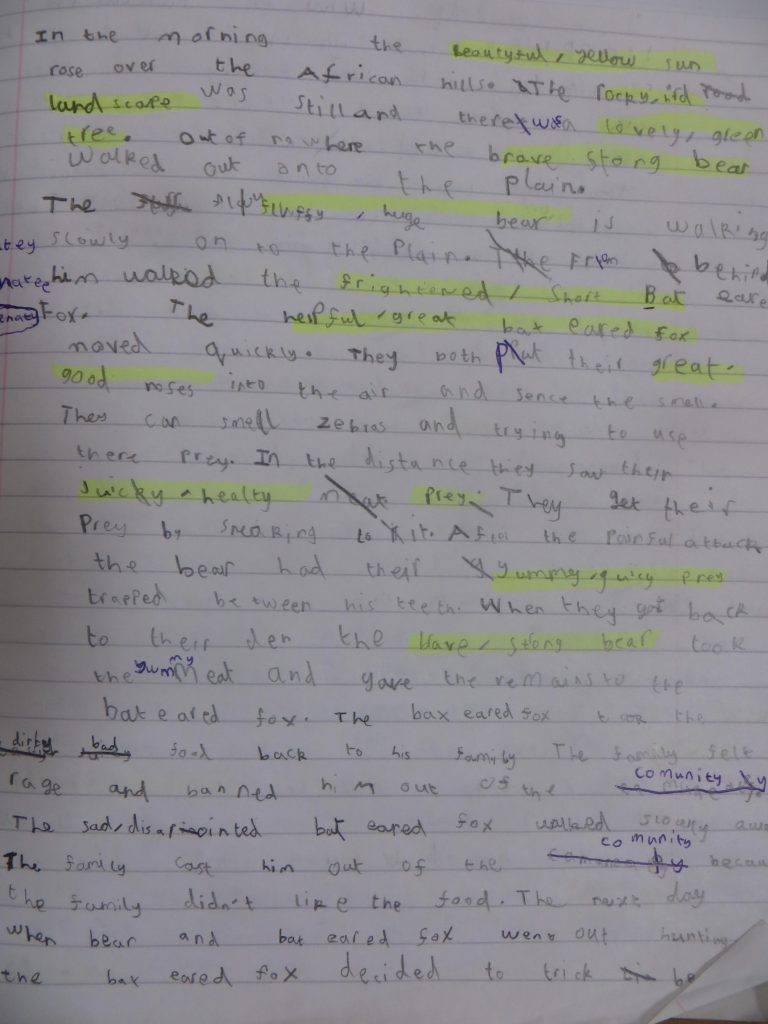 In the morning the beautyful, yellow sun
rose over the African hills. The rocky, rid road
landscape was still and there was a lovely, green
tree. Out of nowhere the brave stong bear
walked out onto the plain.
The fluffy, huge bear is walking
slowly on to the plain. From behind
him walked the frightened, short Bat eare
Fox. The helpful, great bax eared fox
moved quickly. They both put their great.
good noses into the air and sence the smell.
They can smell zebras and trying to use
there prey. In the distance they saw their
juicky, healty meat prey. They get their
prey by sneaking to it. After the painful attack
the bear had their yummy, quicy prey
trapped between his teeth. When they got back
to their den the bave, stong bear took
the yummy meat and gave the remains to the
bat eared fox. The bax eared fox took the
dirty bady food back to his family The family felt
rage and banned him out of the comunity
The sad, disapointed bat eared fox walked slowly awa
The family cast him out of the comunity becau
the family didn't like the food. The next day
when bear and bat eared fox went out hunting
the bax eared fox decided to trick be